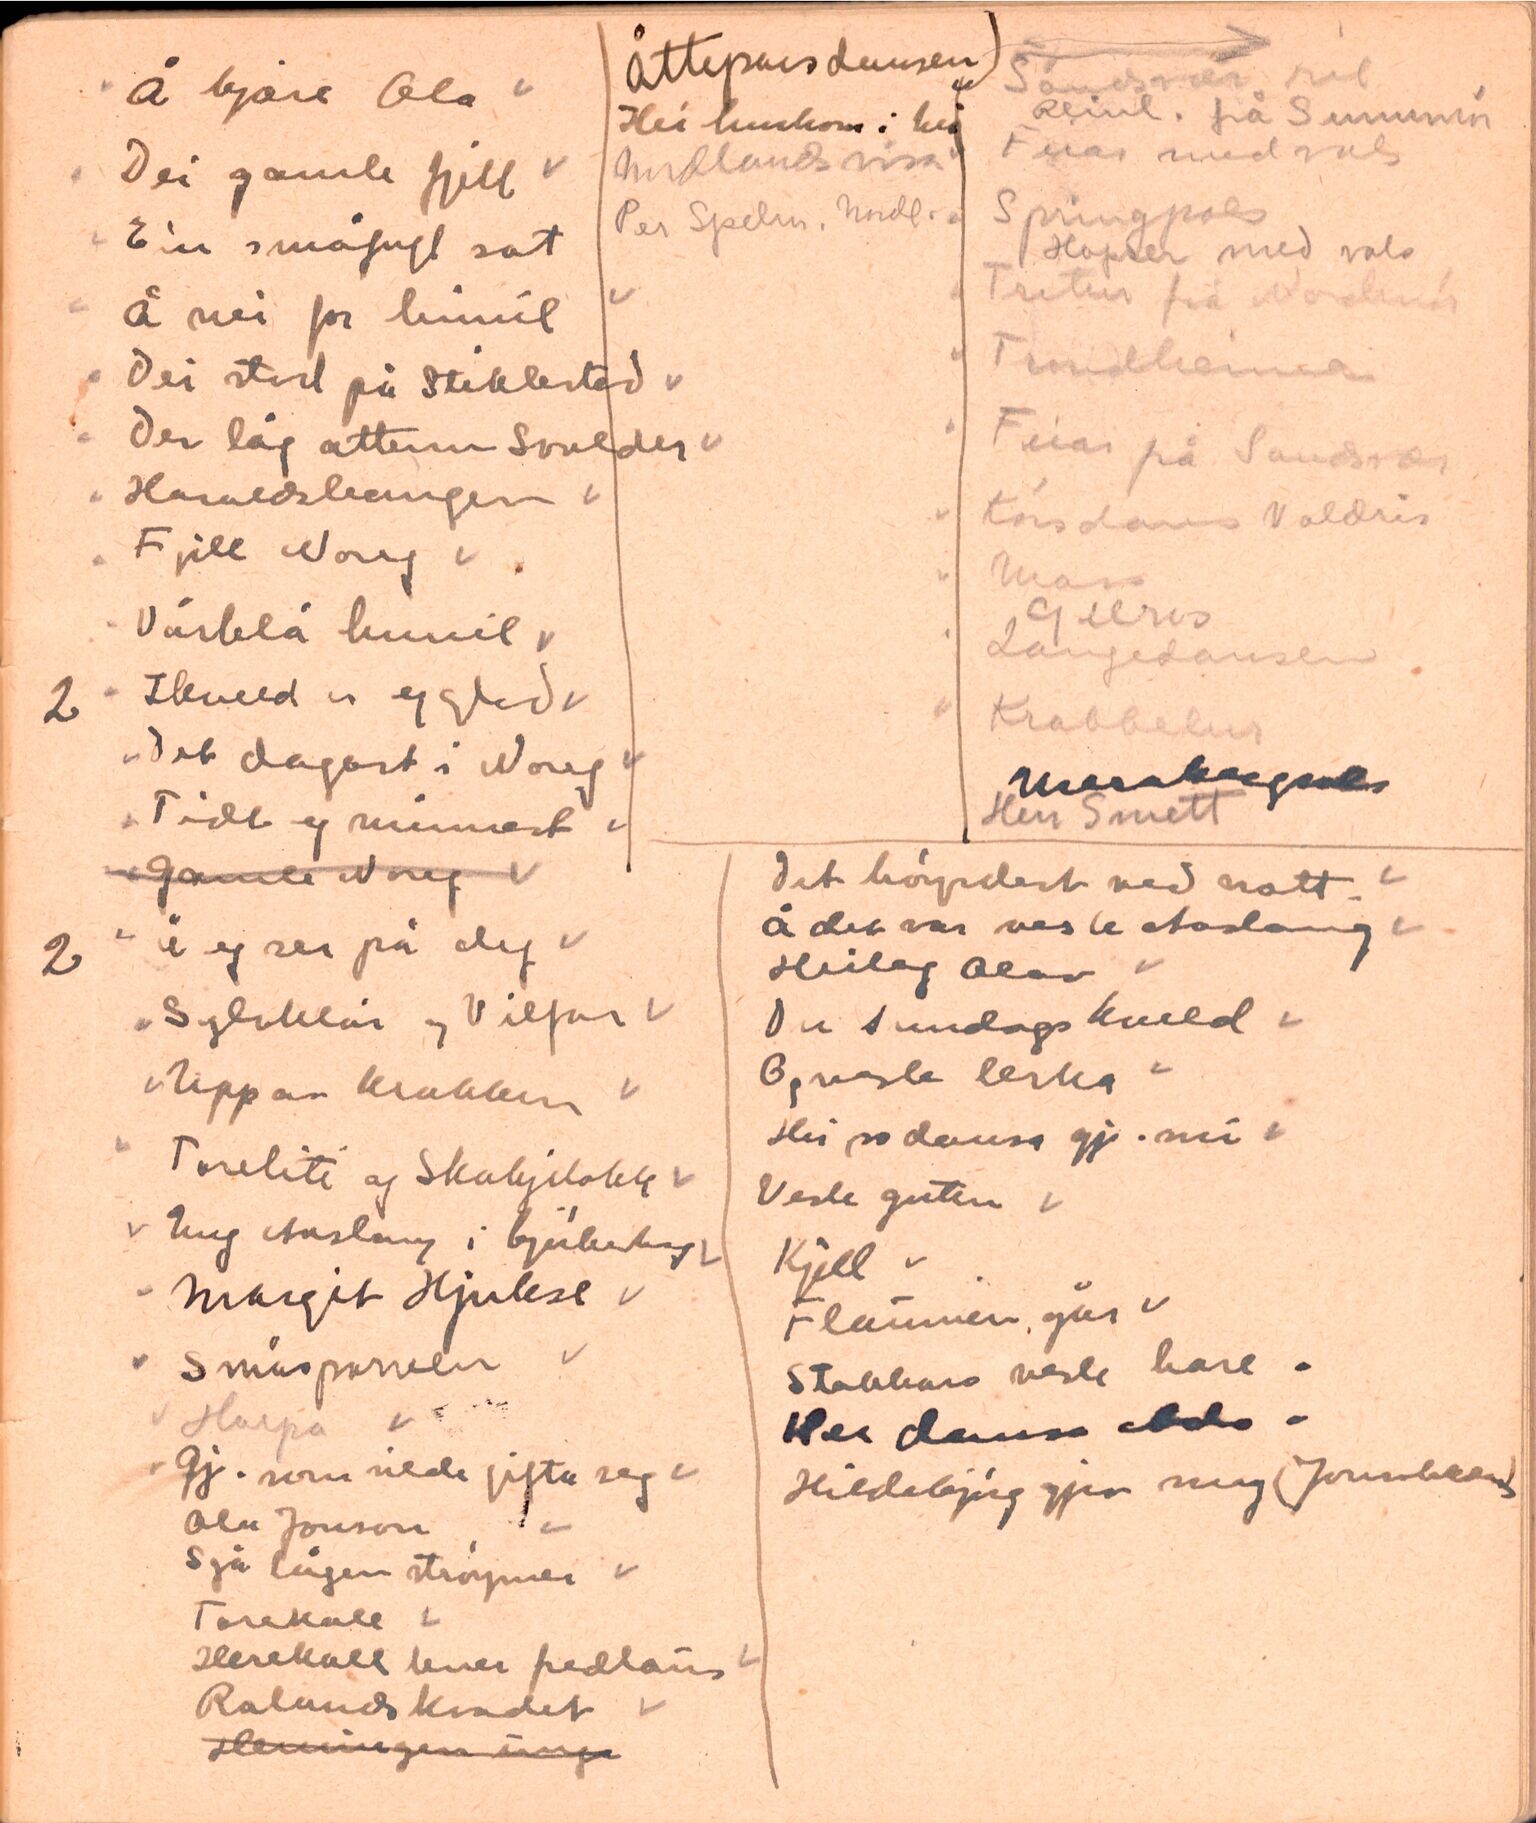 Å kjære Ola
Dei gamle fjell
Ein småfugl sat
Å nei for himil
Dei stod på Stiklestad
Der låg attum Svolder
Haraldshaugen
Fjill Noreg
Vårblå himil
2 Ikveld er eg glad
Det dagast i Noreg
Tidt eg minnest
Gamle Noreg
2 Å eg ser på deg
Sylvklår og Vilfar
Uppan krakkin
Toreliti og Skakjelokk
Ung Aaslaug i
Margit Hjukse
Småsporven
Harpa
Gj. som vilde gifta seg
Ola Jonson
Sjå lågen strøymer
Torekall
Herekall
Rolandskvadet
Hemingen unge
Åtteparsdansen)
Hei huskom i hei
Nordlandsvisa
Per Spelm. Nordl.
Sandsvær ril
Reinl. frå Sunnmør
Feiar med vals
Springpols
Hopser med vals
Tritur frå Nordmør
Trondheimer
Feiar frå Sandsvær
Korsdans Valdris
Mass
Gilris
Langedansen
Krabbelur
Herr Smett
Det høyrdest ved nott
Å det var vesle Aaslaug
Heilag Olav
Du sundagskveld
Og vesle lerka
Hei so dansa gj. mi
Vesle guten
Kjell
Flaumen går
Stakkars vesle hare
Her dansa
Hildebjørg gjer seg (Jonsokkveld)